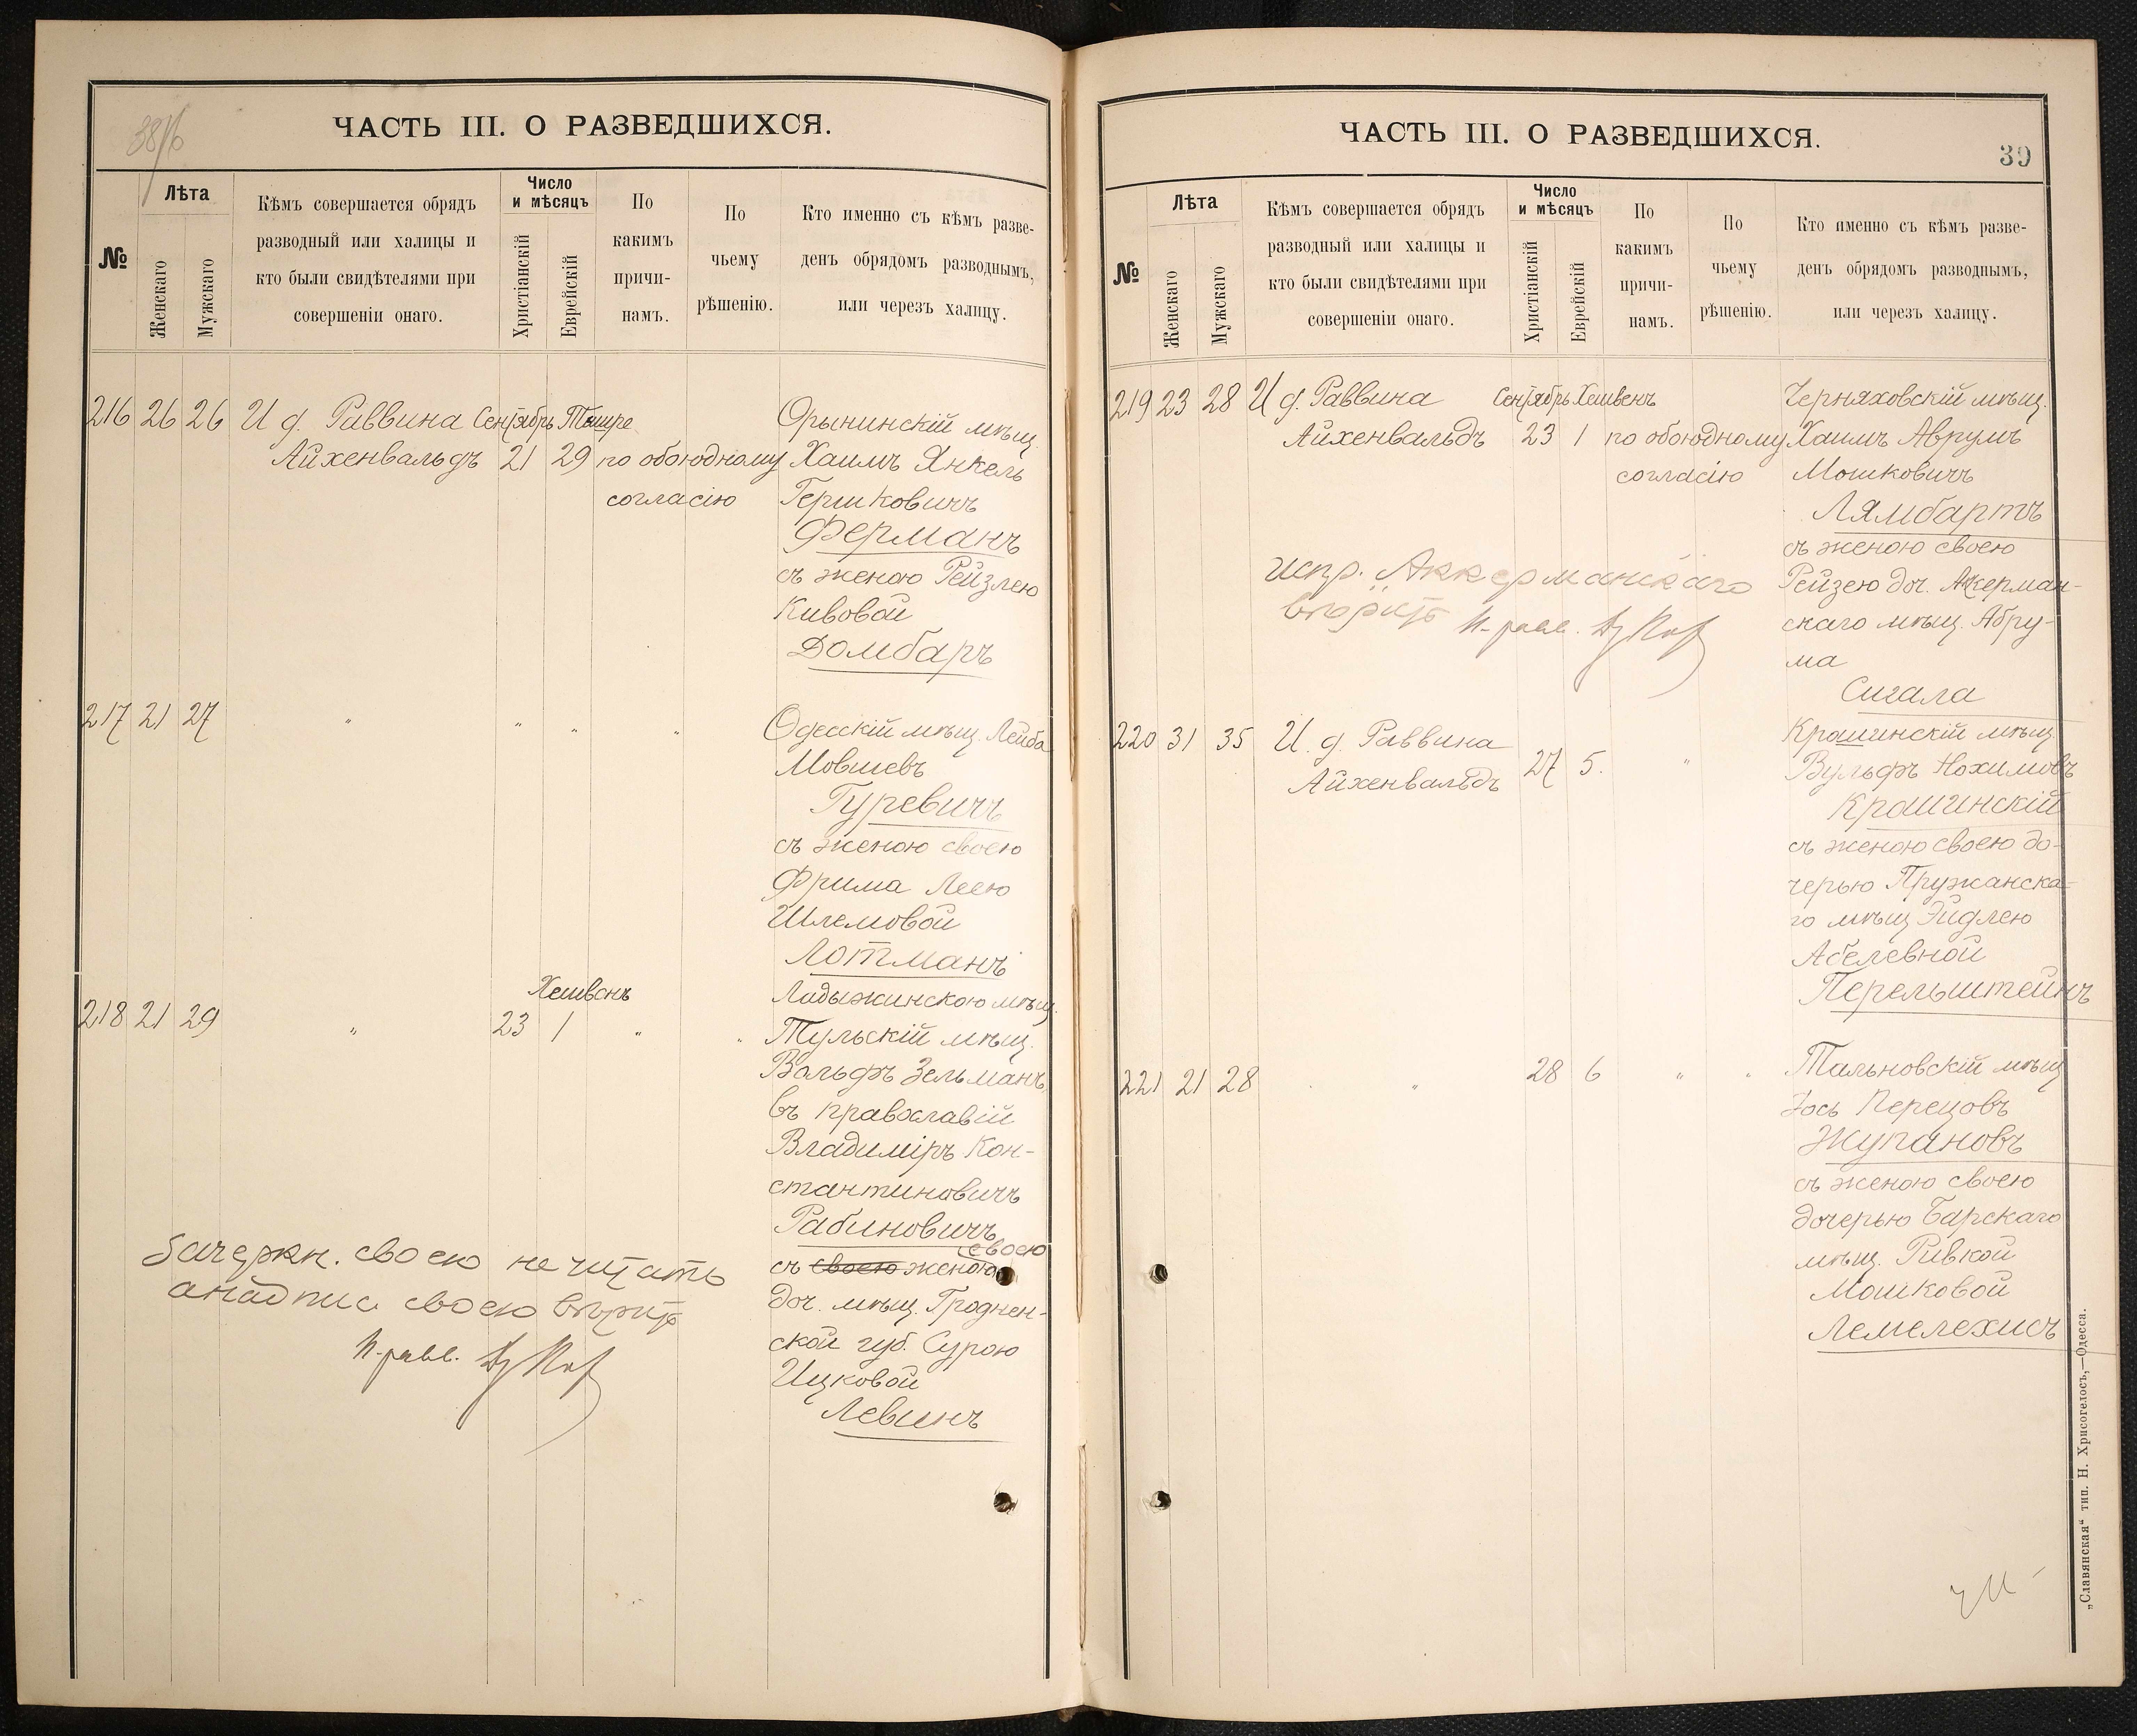 38/б
ЧАСТЬ III. О РАЗВЕДШИХСЯ.
№
Лѣта
Женскаго
Мужскаго
Кѣмъ совершается обрядъ
разводный или халицы и
кто были свидѣтелями при
совершеніи онаго.
Число
и мѣсяцъ
Христіанскій
Еврейскій
По
какимъ
причи-
намъ.
По
чьему
рѣшенію.
Кто именно съ кѣмъ разве-
денъ обрядомъ разводнымъ,
или черезъ халицу.
216 26 26 И д. Раввина Сентябрь Тишре Орынинскій мѣщ.
Айхенвальдъ 21 29 по обоюдному Хаимъ Янкель
согласію Гершковичъ
Ферманъ
съ женою Рейзлею
Кивовой
Домбаръ
217 21 27 " " " " Одесскій мѣщ. Лейба
Мовшевъ
Гуревичъ
съ женою своею
Фрима Леею
Шлемовой
Лотманъ
Хешвенъ Ладыжинскою мѣщ.
218 21 29 " 23 1 " " Тульскій мѣщ.
Вольфъ Зельманъ,
въ православій
Владиміръ Кон-
стантиновичъ
Рабиновичъ
своею
съ своею женою
доч. мѣщ. Гроднен-
ской губ. Сурою
Ицковой
Левинъ
Зачеркн. своею не читать
а надпис. своею вѣрить
ЧАСТЬ III. О РАЗВЕДШИХСЯ.
39
№
Лѣта
Женскаго
Мужскаго
Кѣмъ совершается обрядъ
разводный или халицы и
кто были свидѣтелями при
совершеніи онаго.
Число
и мѣсяцъ
Христіанскій
Еврейскій
По
какимъ
причи-
намъ.
По
чьему
рѣшенію.
Кто именно съ кѣмъ разве-
денъ обрядомъ разводнымъ,
или черезъ халицу.
219 23 28 И д. Раввина Сентябрь Хешвенъ Черняховскій мѣщ.
Айхенвальдъ 23 1 по обоюдному Хаимъ Аврумъ
согласію Мошковичъ
Лямбартъ
съ женою своею
Рейзею доч. Акерман-
скаго мѣщ. Абру-
ма
Сигала
испр. Аккерманскаго
вѣрить
220 31 35 И. д. Раввина Крашинскій мѣщ.
Айхенвальдъ 27 5. " Вульфъ Нохимовъ
Крашинскій
съ женою своею до-
черью Пружанска-
го мѣщ. Эйдлею
Абелевной
Перельштейнъ
221 21 28 " 28 6 " " Тальновскій мѣщ
Іось Перецовъ
Жупановъ
съ женою своею
дочерью Барскаго
мѣщ. Ривкой
Мошковой
Лемелехисъ
„Славянская“ тип. Н. Хрисогелосъ,—Одесса.